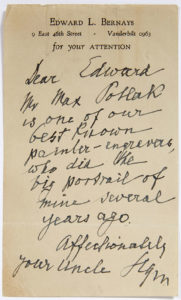 EDWARD L. BERNAYS
9 East 46th Street - Vanderbilt 1963
for your ATTENTION
Dear Edward
Mr Max Pollak
is one of our
best known
painter-engravers,
who did the
big portrait of
mine several
years ago.
Affectionately
your Uncle Sigm